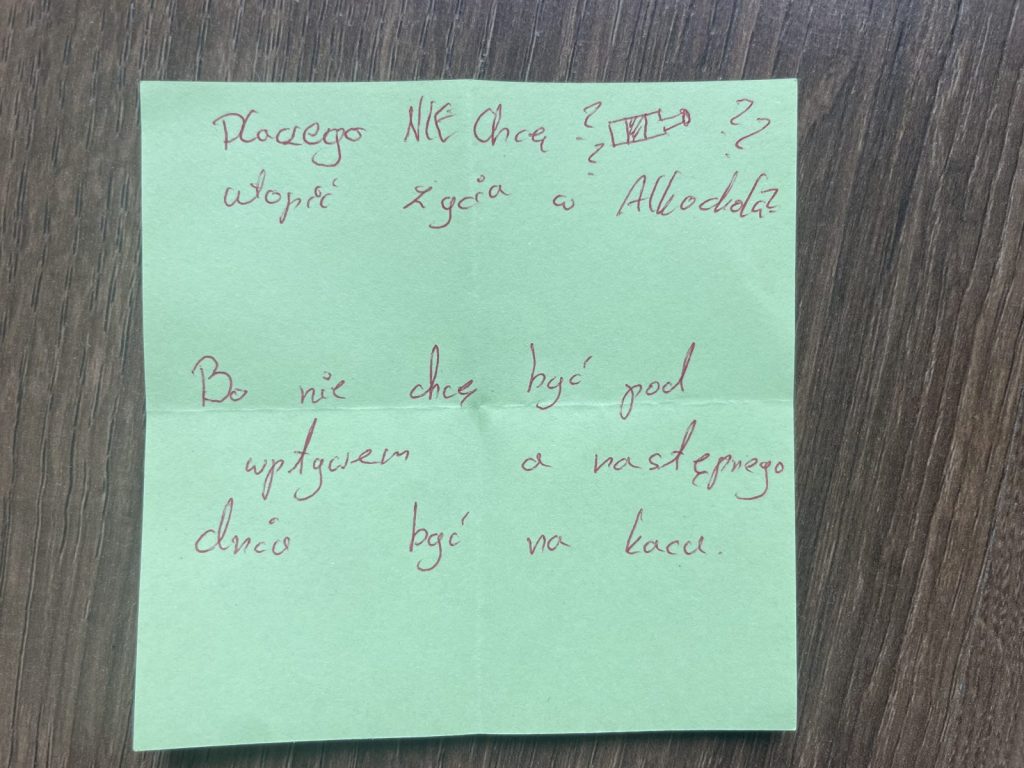 Dlaczego NIE Chcę ? ? ? ?
utopić życia w Alkocholu?
Bo nie chcę być pod
wpływem a następnego
dnia być na kacu.